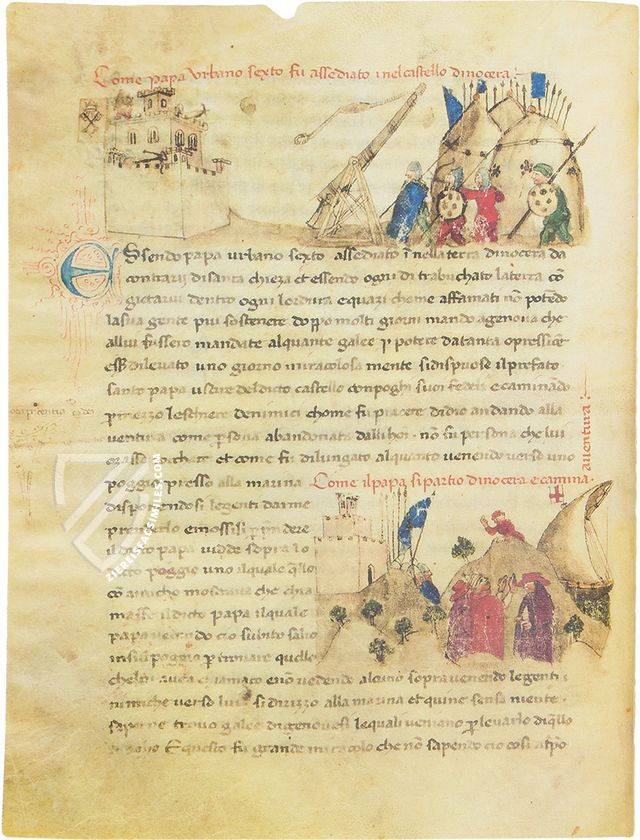 Come papa Urbano sexto fu assediato i nel castello di nocera :
ESsendo papa urbano sexto assediato ī nella terra di nocera da
contrarij di santa chieza et essendo ogni di trabuchato la terra cō
gictarui dentro ogni lordura e quazi chome affamati nō potēdo
la sua gente piu sostenere doppo molti giorni mando a genoua che
allui fussero mandate alquante galee p potere da tanta opressiōe
esser di leuato uno giorno miracolosa mente si dispuose il prefato
santo papa uscire del dicto castello con poghi suoi fedeli e caminādo
p mezzo le schiere de nimici chome fu piacere di dio andando alla
ventura come psona abandonata dalli hoi. nō fu persona che lui
et come fu dilungato alquanto venendo verso uno
poggio presso alla marina
Come il papa si partio di nocera e camina
aventura :
disponendosi le genti darme
prenderlo e mossisi p prēdere
il dicto papa vidde sopra lo
dicto poggio uno il quale q̄llo
cō mostraua che chia
masse il dicto papa il quale
papa vedendo cio subito salio
in sul poggio p trouare quello
che lui auea chiamato e nō vedendo alcuno sopra venendo le genti
nimiche verso lui si dirizzo alla marina et quine sensa niente
saperne trouo galee di genouesi le quali veniano p leuarlo di q̄llo
E questo fu grande miracolo che nō sapendo cio cosi a tpō
ZIEREISFACSIMILES.COM